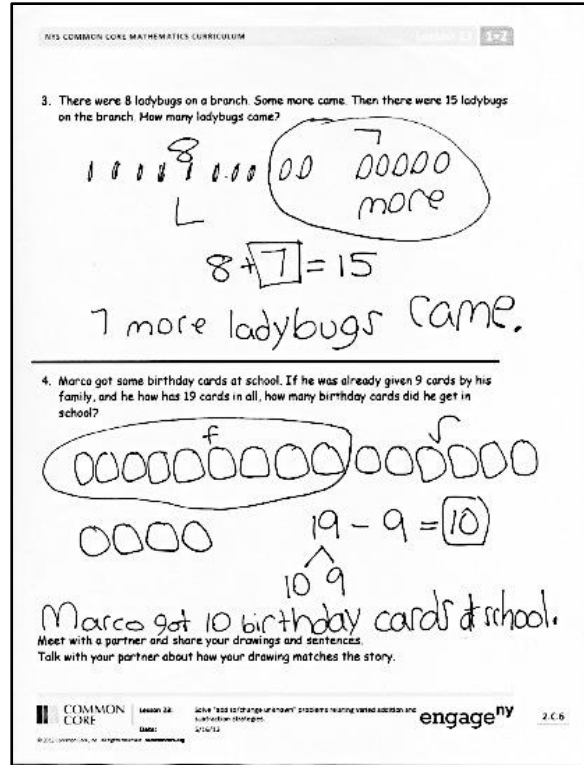 NYS COMMON CORE MATHEMATICS CURRICULUM Lesson 23 1•2
3. There were 8 ladybugs on a branch. Some more came. Then there were 15 ladybugs
on the branch. How many ladybugs came?
8 7
L more
8 + 7 = 15
7 more ladybugs came.
4. Marco got some birthday cards at school. If he was already given 9 cards by his
family, and he how has 19 cards in all, how many birthday cards did he get in
school?
f s
19 - 9 = 10
10 9
Marco got 10 birthday cards at school.
Meet with a partner and share your drawings and sentences.
Talk with your partner about how your drawing matches the story.
COMMON CORE
Lesson 23: Solve "add to/change unknown" problems relating varied addition and
subtraction strategies.
Date: 5/16/13
engage ny
2.C.6